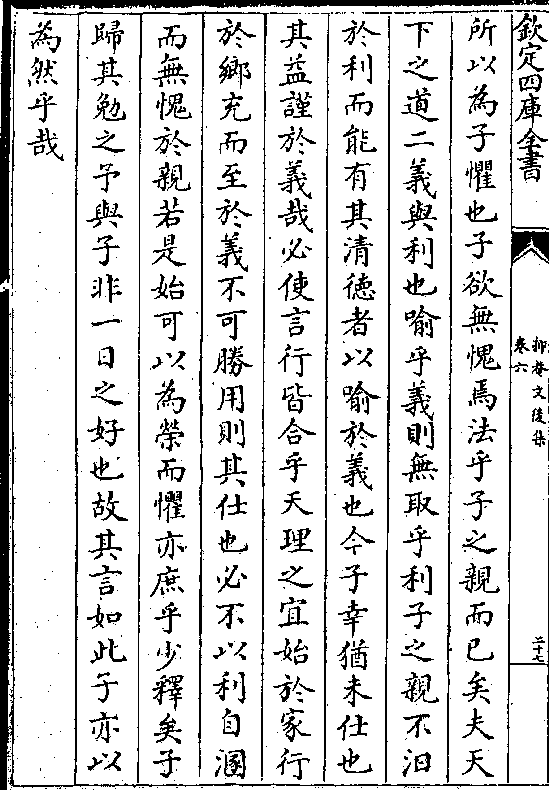 欽定四庫全書
抑菴文後集
卷六
二十七
所以為子懼也子欲無愧焉法乎子之親而已矣夫天
下之道二義與利也喻乎義則無取乎利子之親不汨
於利而能有其清德者以喻於義也今子幸猶未仕也
其益謹於義哉必使言行皆合乎天理之宜始於家行
於鄉充而至於義不可勝用則其仕也必不以利自溷
而無愧於親若是始可以為榮而懼亦庶乎少釋矣子
歸其勉之予與子非一日之好也故其言如此子亦以
為然乎哉